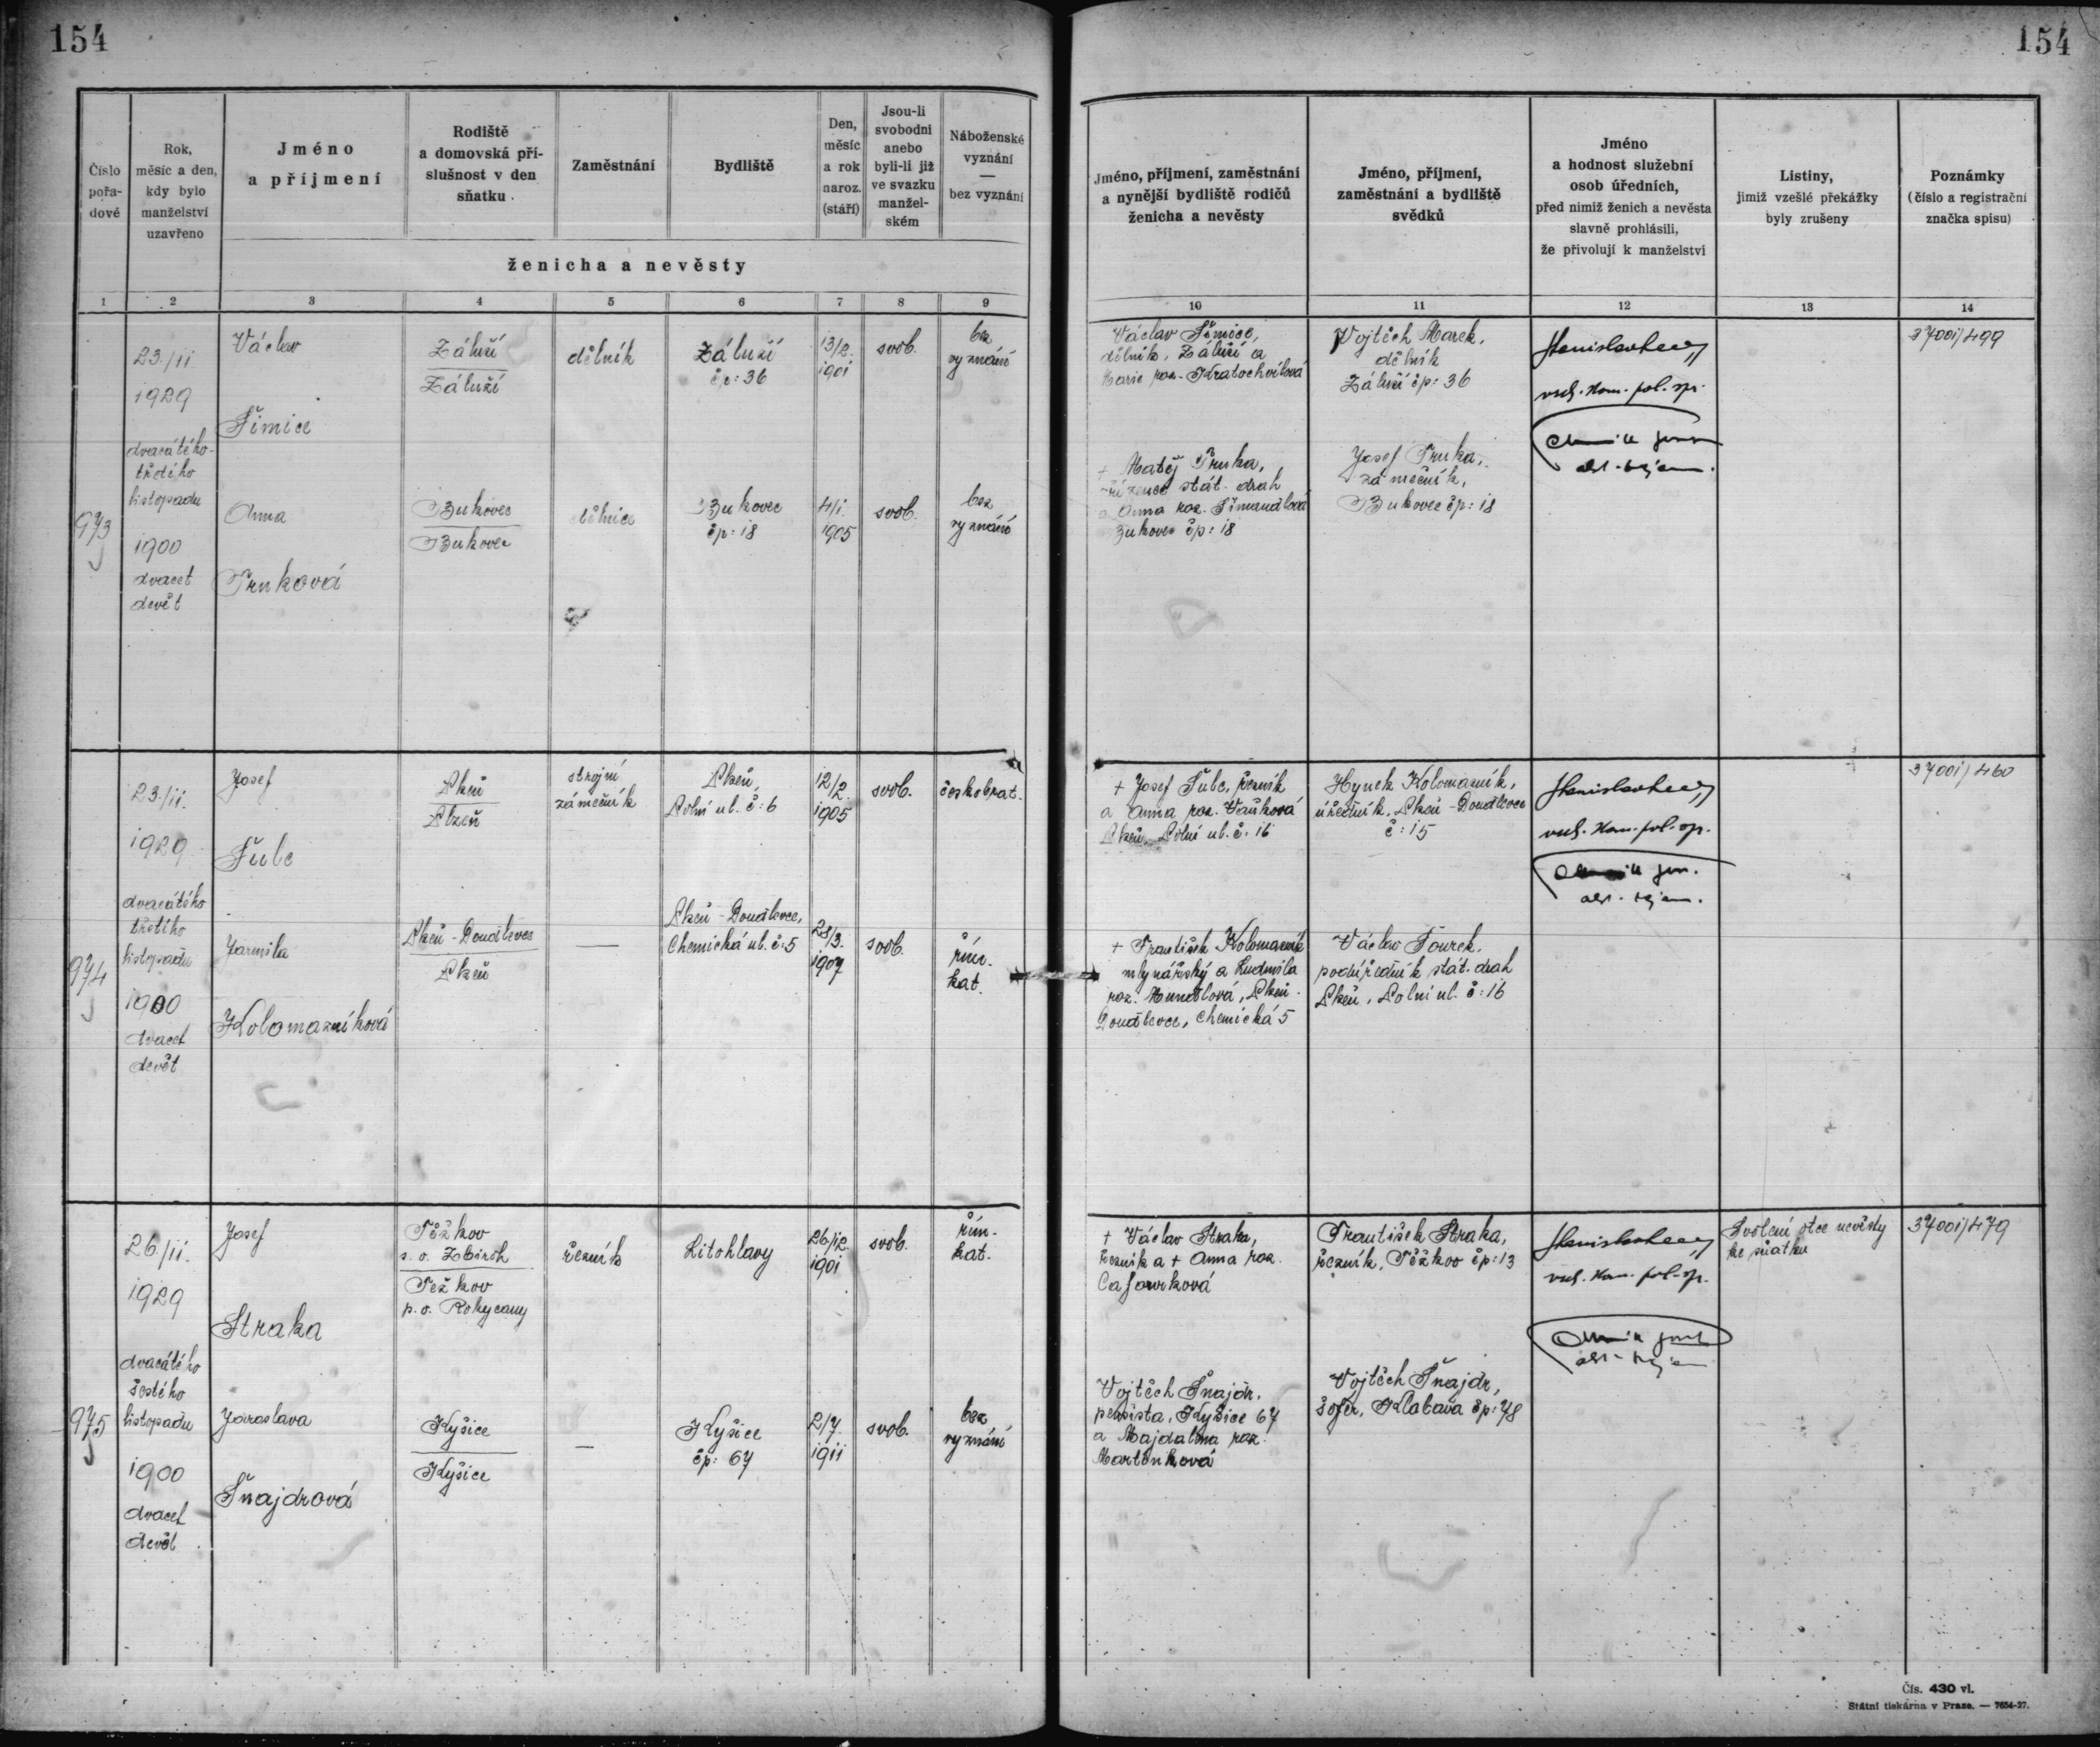 154
154
Číslo
pořa-
dové
Rok,
měsíc a den,
kdy bylo
manželství
uzavřeno
Jméno
a příjmení
Rodiště
a domovská pří-
slušnost v den
sňatku
Zaměstnání
Bydliště
Den,
měsíc
a rok
naroz.
(stáří)
Jsou-li
svobodni
anebo
byli-li již
ve svazku
manžel-
ském
Náboženské
vyznání
—
bez vyznání
ženicha a nevěsty
Jméno, příjmení, zaměstnání
a nynější bydliště rodičů
ženicha a nevěsty
Jméno, příjmení,
zaměstnání a bydliště
svědků
Jméno
a hodnost služební
osob úředních,
před nimiž ženich a nevěsta
slavně prohlásili,
že přivolují k manželství
Listiny,
jimiž vzešlé překážky
byly zrušeny
Poznámky
(číslo a registrační
značka spisu)
1 2 3 4 5 6 7 8 9 10 11 12 13 14
973
23./11
1929
dvacátého-
třetího
listopadu
1900
dvacet
devět
Václav
Šimice
Záluží
Záluží
dělník
Záluží
čp: 36
13/2.
1901
svob.
bez
vyznání
Václav Šimice,
dělník, Záluží a
Marie roz. Kratochvílová
Vojtěch Marek,
dělník
Záluží čp: 36
vrch. kom. pol. spr.
37001/499
Anna
Trnková
Bukovec
Bukovec
dělnice
Bukovec
čp: 18
4/1.
1905
svob.
bez
vyznání
+ Matěj Trnka,
zřízenec stát. drah
a Anna roz. Šimandlová
Bukovec čp: 18
Josef Trnka,
zámečník,
Bukovec čp: 18
974
23./11.
1929
dvacátého
třetího
listopadu
1900
dvacet
devět
Josef
Šulc
Plzeň
Plzeň
strojní
zámečník
Plzeň,
Polní ul. č: 6
12/2.
1905
svob.
českobrat.
+ Josef Šulc, řezník
a Anna roz. Vaňková
Plzeň, Polní ul. č: 16
Hynek Kolomazník,
úředník, Plzeň - Doudlevce
č: 15
vrch. kom. pol. spr.
37001/460
Jarmila
Kolomazníková
Plzeň - Doudlevce
Plzeň
—
Plzeň - Doudlevce,
Chemická ul. č: 5
28/3.
1907
svob.
řím.
kat.
+ František Kolomazník
mlynářský a Ludmila
roz. Mundlová, Plzeň -
Doudlevce, Chemická 5
Václav Šourek,
podúředník stát. drah
Plzeň, Polní ul. č: 16
975
26./11.
1929
dvacátého
šestého
listopadu
1900
dvacet
devět
Josef
Straka
Těžkov
s. o. Zbiroh
Těžkov
p. o. Rokycany
řezník
Litohlavy
26/12.
1901
svob.
řím.
kat.
+ Václav Straka,
řezník a + Anna roz.
Cajourková
František Straka,
řezník, Těžkov čp: 13
vrch. kom. pol. spr.
Svolení otce nevěsty
ke sňatku
37001/479
Jaroslava
Šnajdrová
Kyšice
Kyšice
—
Kyšice
čp: 67
2/7.
1911
svob.
bez
vyznání
Vojtěch Šnajdr,
pensista, Kyšice 67
a Majdalena roz.
Martínková
Vojtěch Šnajdr,
šofér, Klabava čp: 48
Čís. 430 vl.
Státní tiskárna v Praze. — 7654-27.